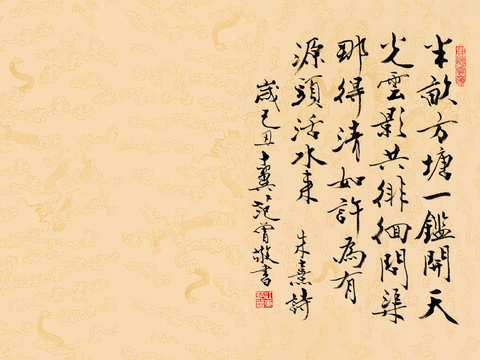 半畝方塘一鑑開天
光雲影共徘徊問渠
那得清如許為有
源頭活水來
朱熹詩
歲己丑十翼范曾敬書